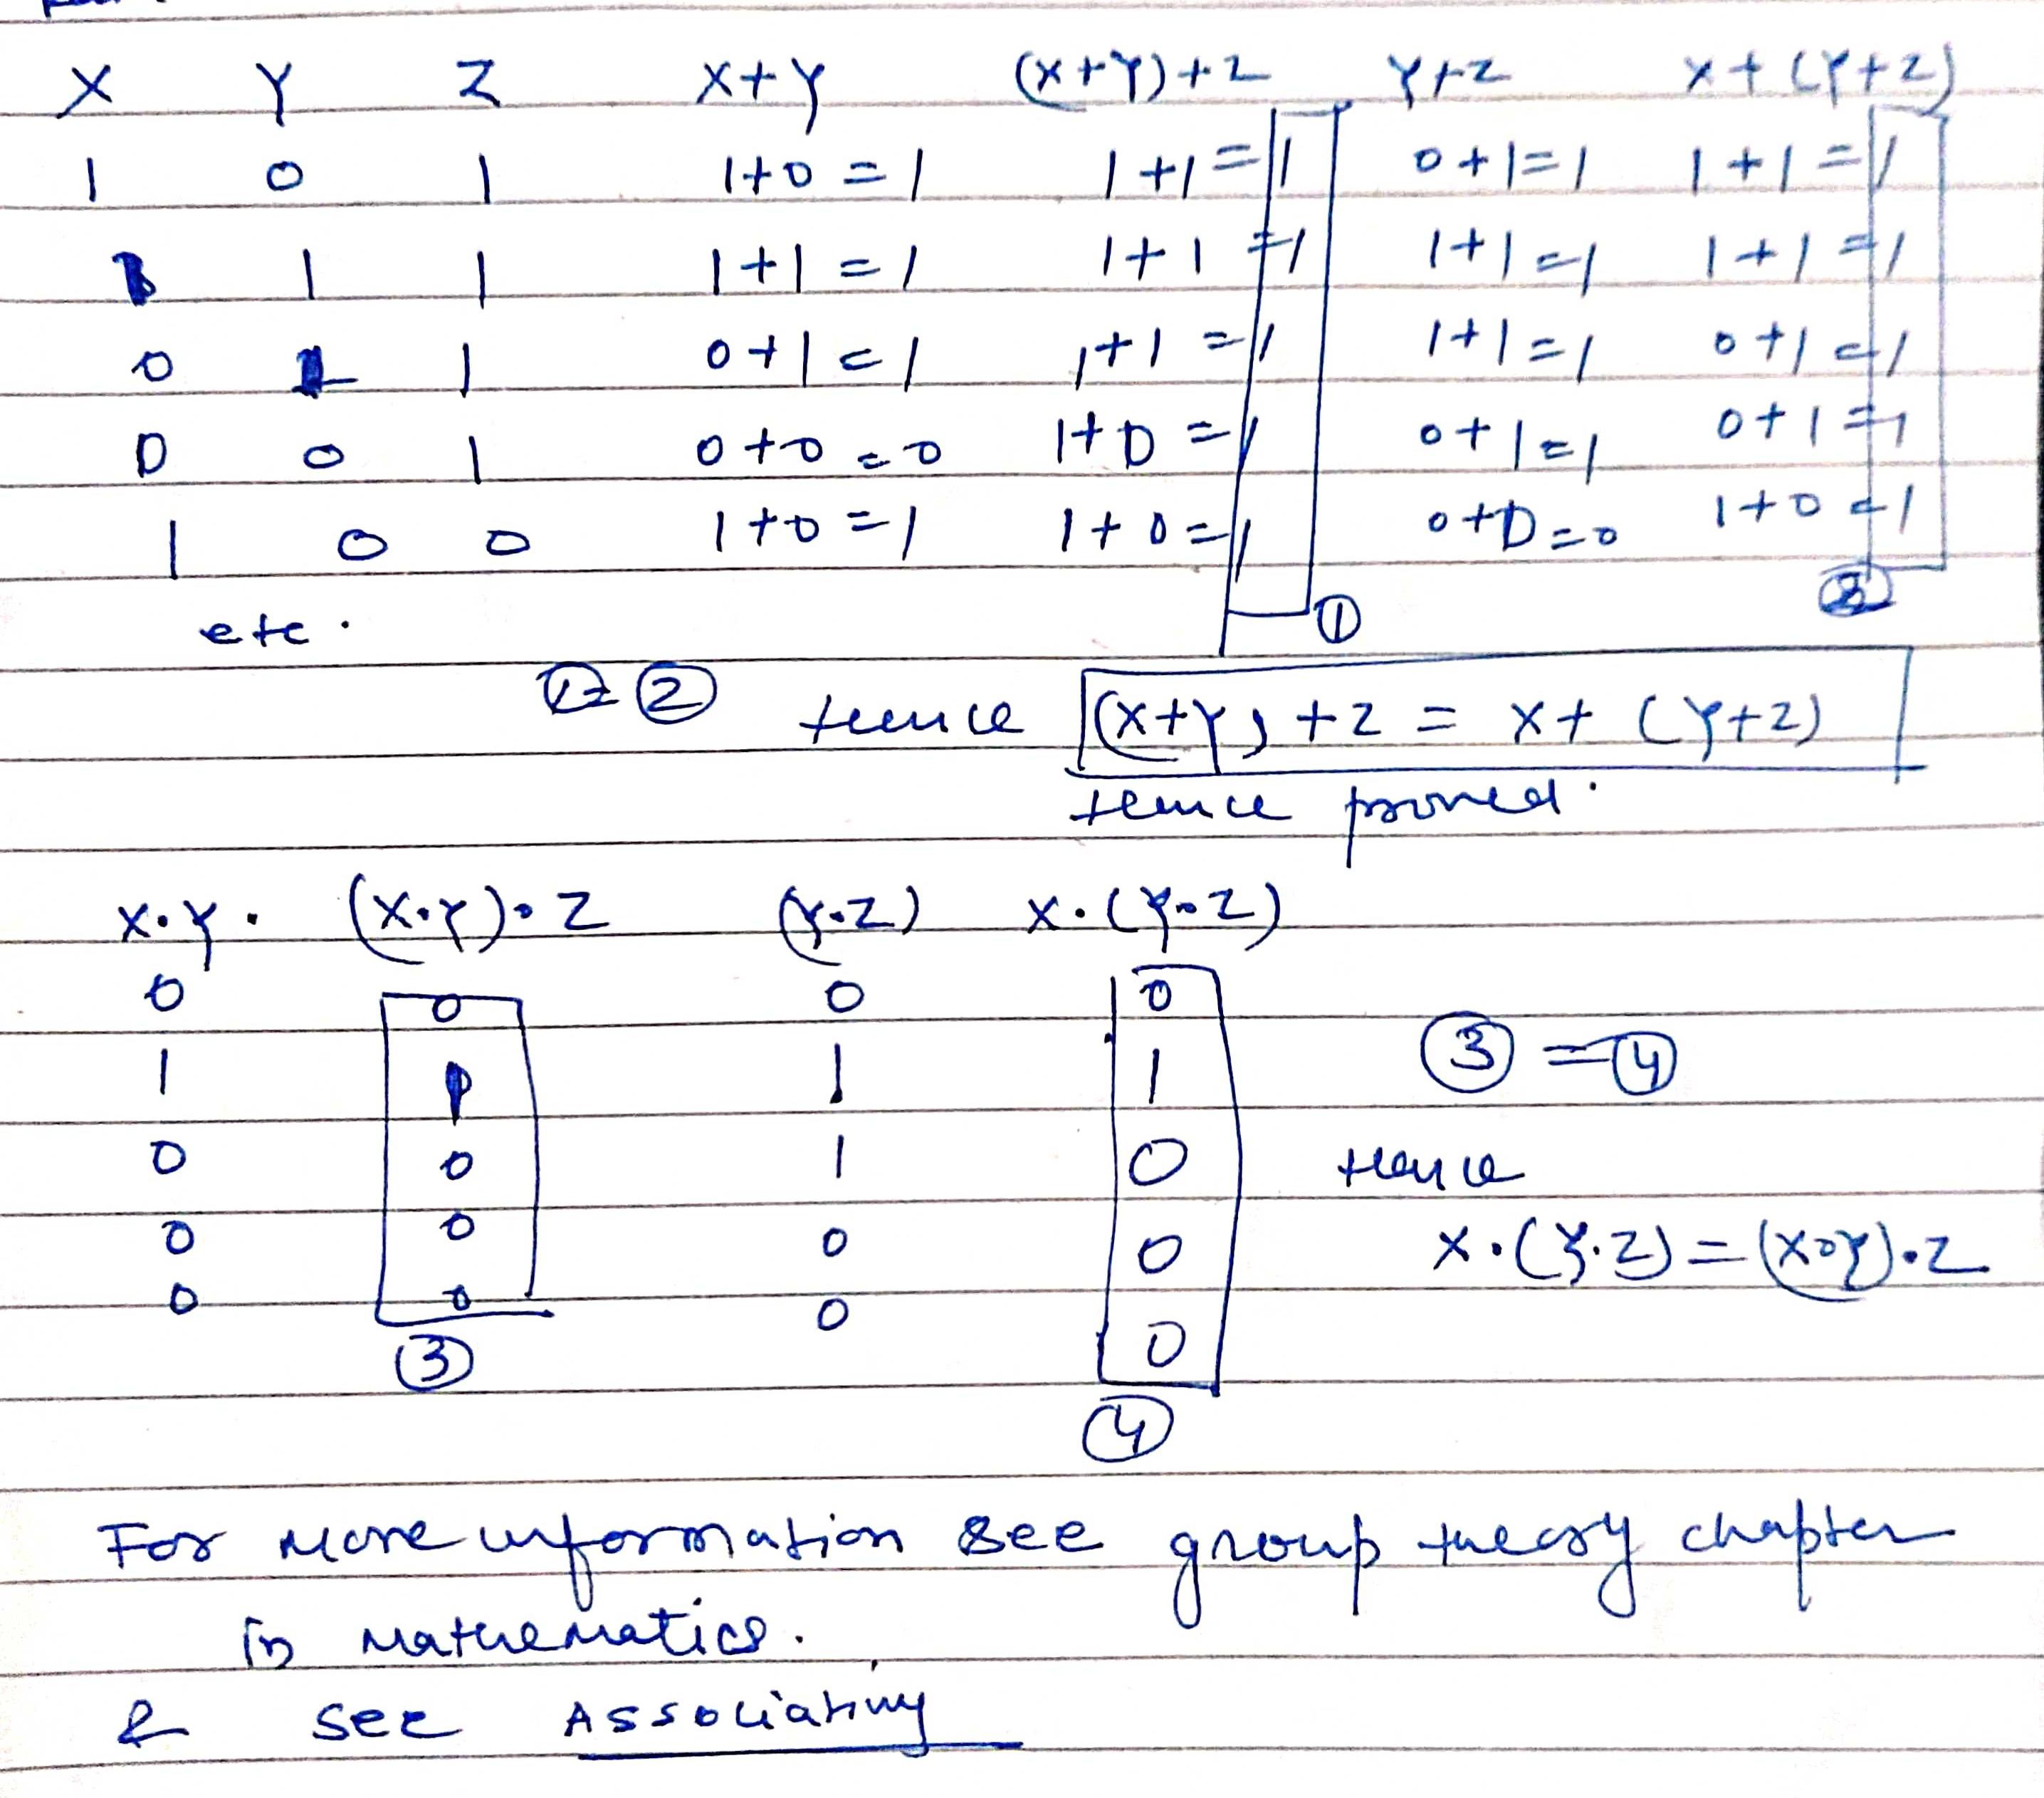 X Y Z X+Y (X+Y)+Z Y+Z X+(Y+Z)
1 0 1 1+0=1 1+1=1 0+1=1 1+1=1
1 1 1+1=1 1+1=1 1+1=1 1+1=1
0 1 1 0+1=1 1+1=1 1+1=1 0+1=1
0 0 1 0+0=0 1+0=1 0+1=1 0+1=1
1 0 0 1+0=1 1+0=1 0+0=0 1+0=1
etc.
① ②
①=② Hence (X+Y)+Z = X+(Y+Z)
Hence proved.
X.Y. (X.Y).Z (Y.Z) X.(Y.Z)
0 0 0 0
1 1 1 1 ③=④
0 0 1 0 Hence
0 0 0 0 X.(Y.Z)=(X.Y).Z
0 0 0 0
③
④
For more information see group theory chapter
in mathematics.
& see Associativy